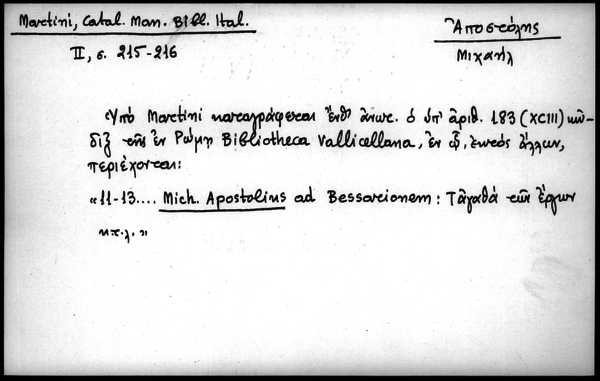 Martini, Catal. Man. Bibl. Ital.
II, σ. 215-216
Ἀποστόλης
Μιχαήλ
Ὑπὸ Martini καταγράφεται ἔνθ' ἀνωτ. ὁ ὑπ' ἀριθ. 183 (XCIII) κῶ-
διξ τῆς ἐν Ρώμῃ Bibliotheca Vallicellana, ἐν ᾧ, ἐκτὸς ἄλλων,
περιέχονται:
«11-13.... Mich. Apostolius ad Bessarionem: Τἀγαθὰ τῶν ἔργων
κ.τ.λ.»